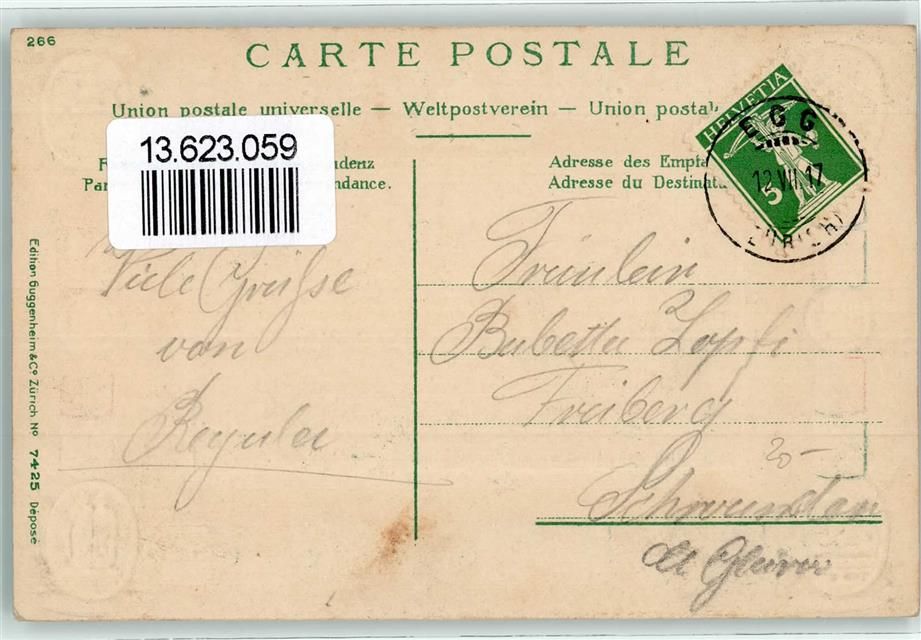 266
CARTE POSTALE
Union postale universelle — Weltpostverein — Union postal
13.623.059
denz
Par ndance.
Adresse des Empfä
Adresse du Destinat
HELVETIA
5
EGG
12.VII.17
(ZÜRICH)
Viele Grüsse
von
Regula
Fräulein
Babetta Zopfi
Freiberg
20-
Schwanden
Ct Glarus
Edition Guggenheim & Co Zürich No 7425 Déposé